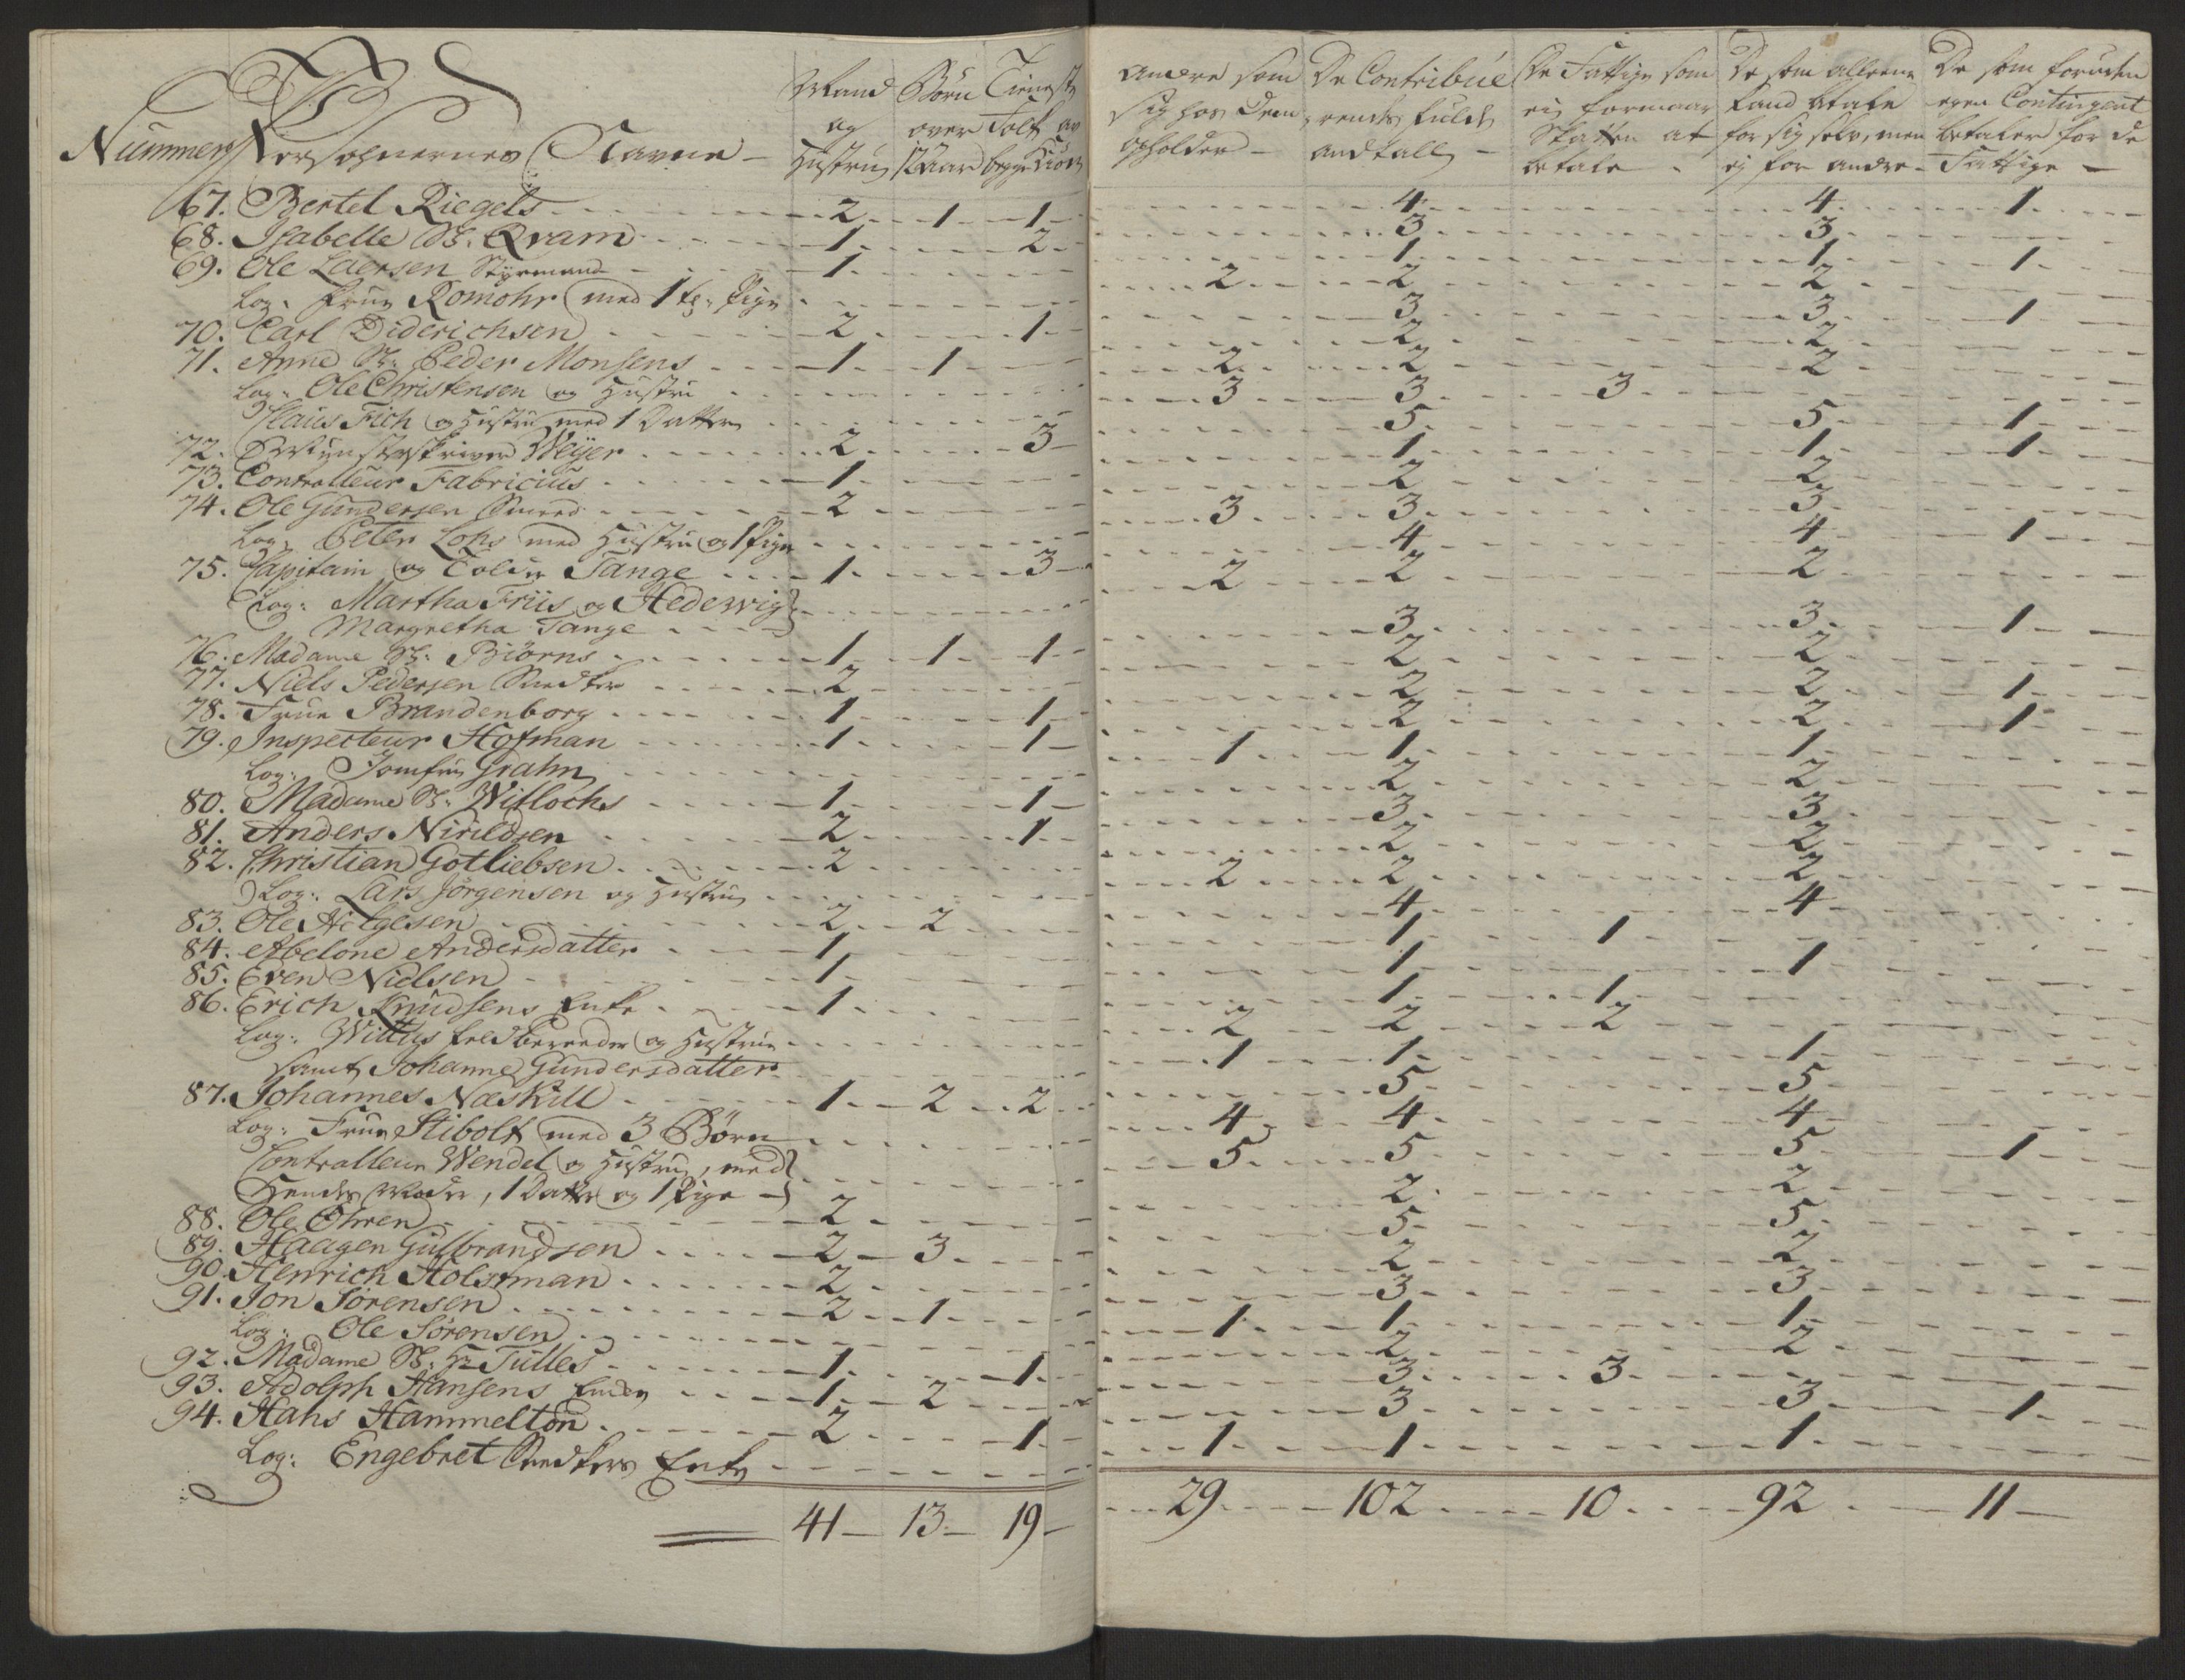 Nummer Persohnernes Navne - Mand og Hustru Børn over 12 Aar Tieneste Folk av begge Kiøn Andre som sig hos dem opholder - De Contribuerendes fulde andtall - De Fattige som ej formaar Skatten at betale - De som alleene kand betale for sig selv, men ej for andre - De som foruden egen Contingent betaler for de Fattige -
67. Bertel Riegels 2 1 1 4 4 1
68. Isabelle Sl. Qvam 1 2 3 3
69. Ole Laersen Styrmand 1 1 1 1
Log. Frue Romohr med 1 Pige 2 2 2
70. Carl Diderichsen 2 1 3 3 1
71. Anne Sl. Peder Monsens 1 1 2 2
Log. Ole Christensen og Hustru 2 2 2
Claus Fich og Hustru med 1 Datter 3 3 3
72. Mynsterskriver Weyer 2 3 5 5 1
73. Controlleur Fabricius 1 1 1 1
74. Ole Gundersen Smed 2 2 2
Log. Peter Lohs med Hustru og 1 Pige 3 3 3
75. Capitain og Tolder Tange 1 3 4 4 1
Log: Martha Friis og Hedevig 2 2 2
Margretha Tange
76. Madame Sl. Biörns 1 1 1 3 3 1
77. Niels Pedersen Snedker 2 2 2
78. Frue Brandenborg 1 1 2 2 1
79. Inspecteur Hofman 1 1 2 2 1
Log: Jomfrue Grahn 1 1 1
80. Madame Sl. Witlochs 1 1 2 2
81. Anders Nirildsen 2 1 3 3
82. Christian Gotliebsen 2 2 2
Log: Lars Jörgensen og Hustru 2 2 2
83. Ole Helgesen 2 2 4 4
84. Abelone Andersdatter 1 1 1
85. Even Nielsen 1 1 1
86. Erich Knudsens Enke 1 1 1
Log: Feldbereeder og Hustrue 2 2 2
samt Johanne Gundersdatter 1 1 1
87. Johannes Næskill 1 2 2 5 5
Log: Frue Stibolt med 3 Børn 4 4 4
Controlleur Wendel og Hustrue, med 5 5 5 1
Hendes Moder, 1 Datter og 1 Pige
88. Ole Öhren 2 2 2
89. Haagen Gulbrandsen 2 3 5 5
90. Henrich Holstman 2 2 2
91. Jon Sörensen 2 1 3 3
Log: Ole Sörensen 1 1 1
92. Madame Sl. Tulles 1 1 2 2
93. Adolph Hansens Enke 1 2 3 3
94. Hans Hammelton 2 1 3 3 1
Log: Engebret Snedkers Enke 1 1 1
41 13 19 29 102 10 92 11